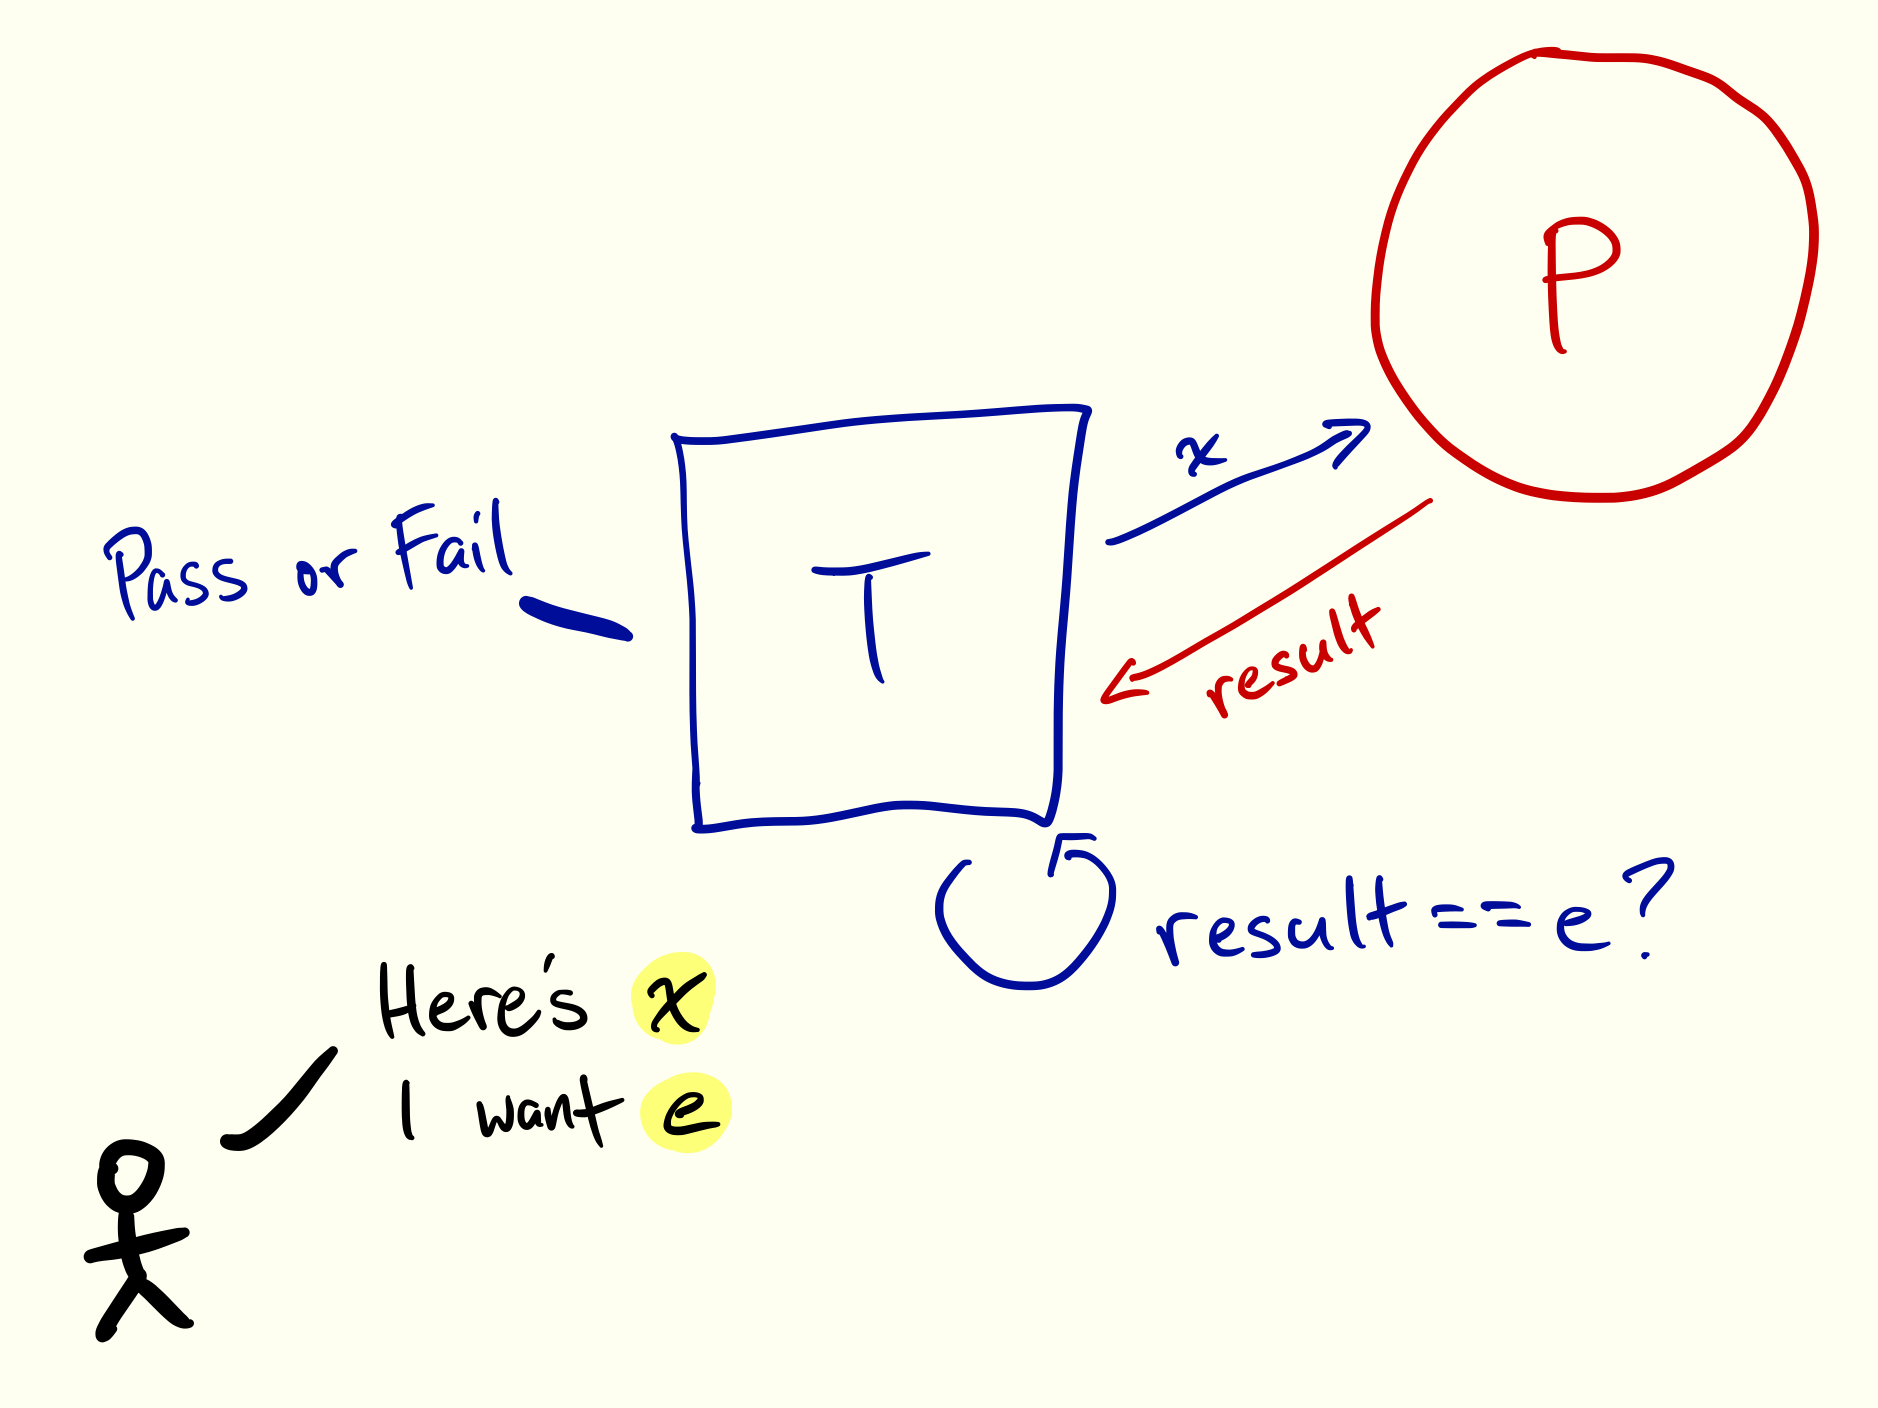 P
x
Pass or Fail
T
result
result == e?
Here's x
I want e